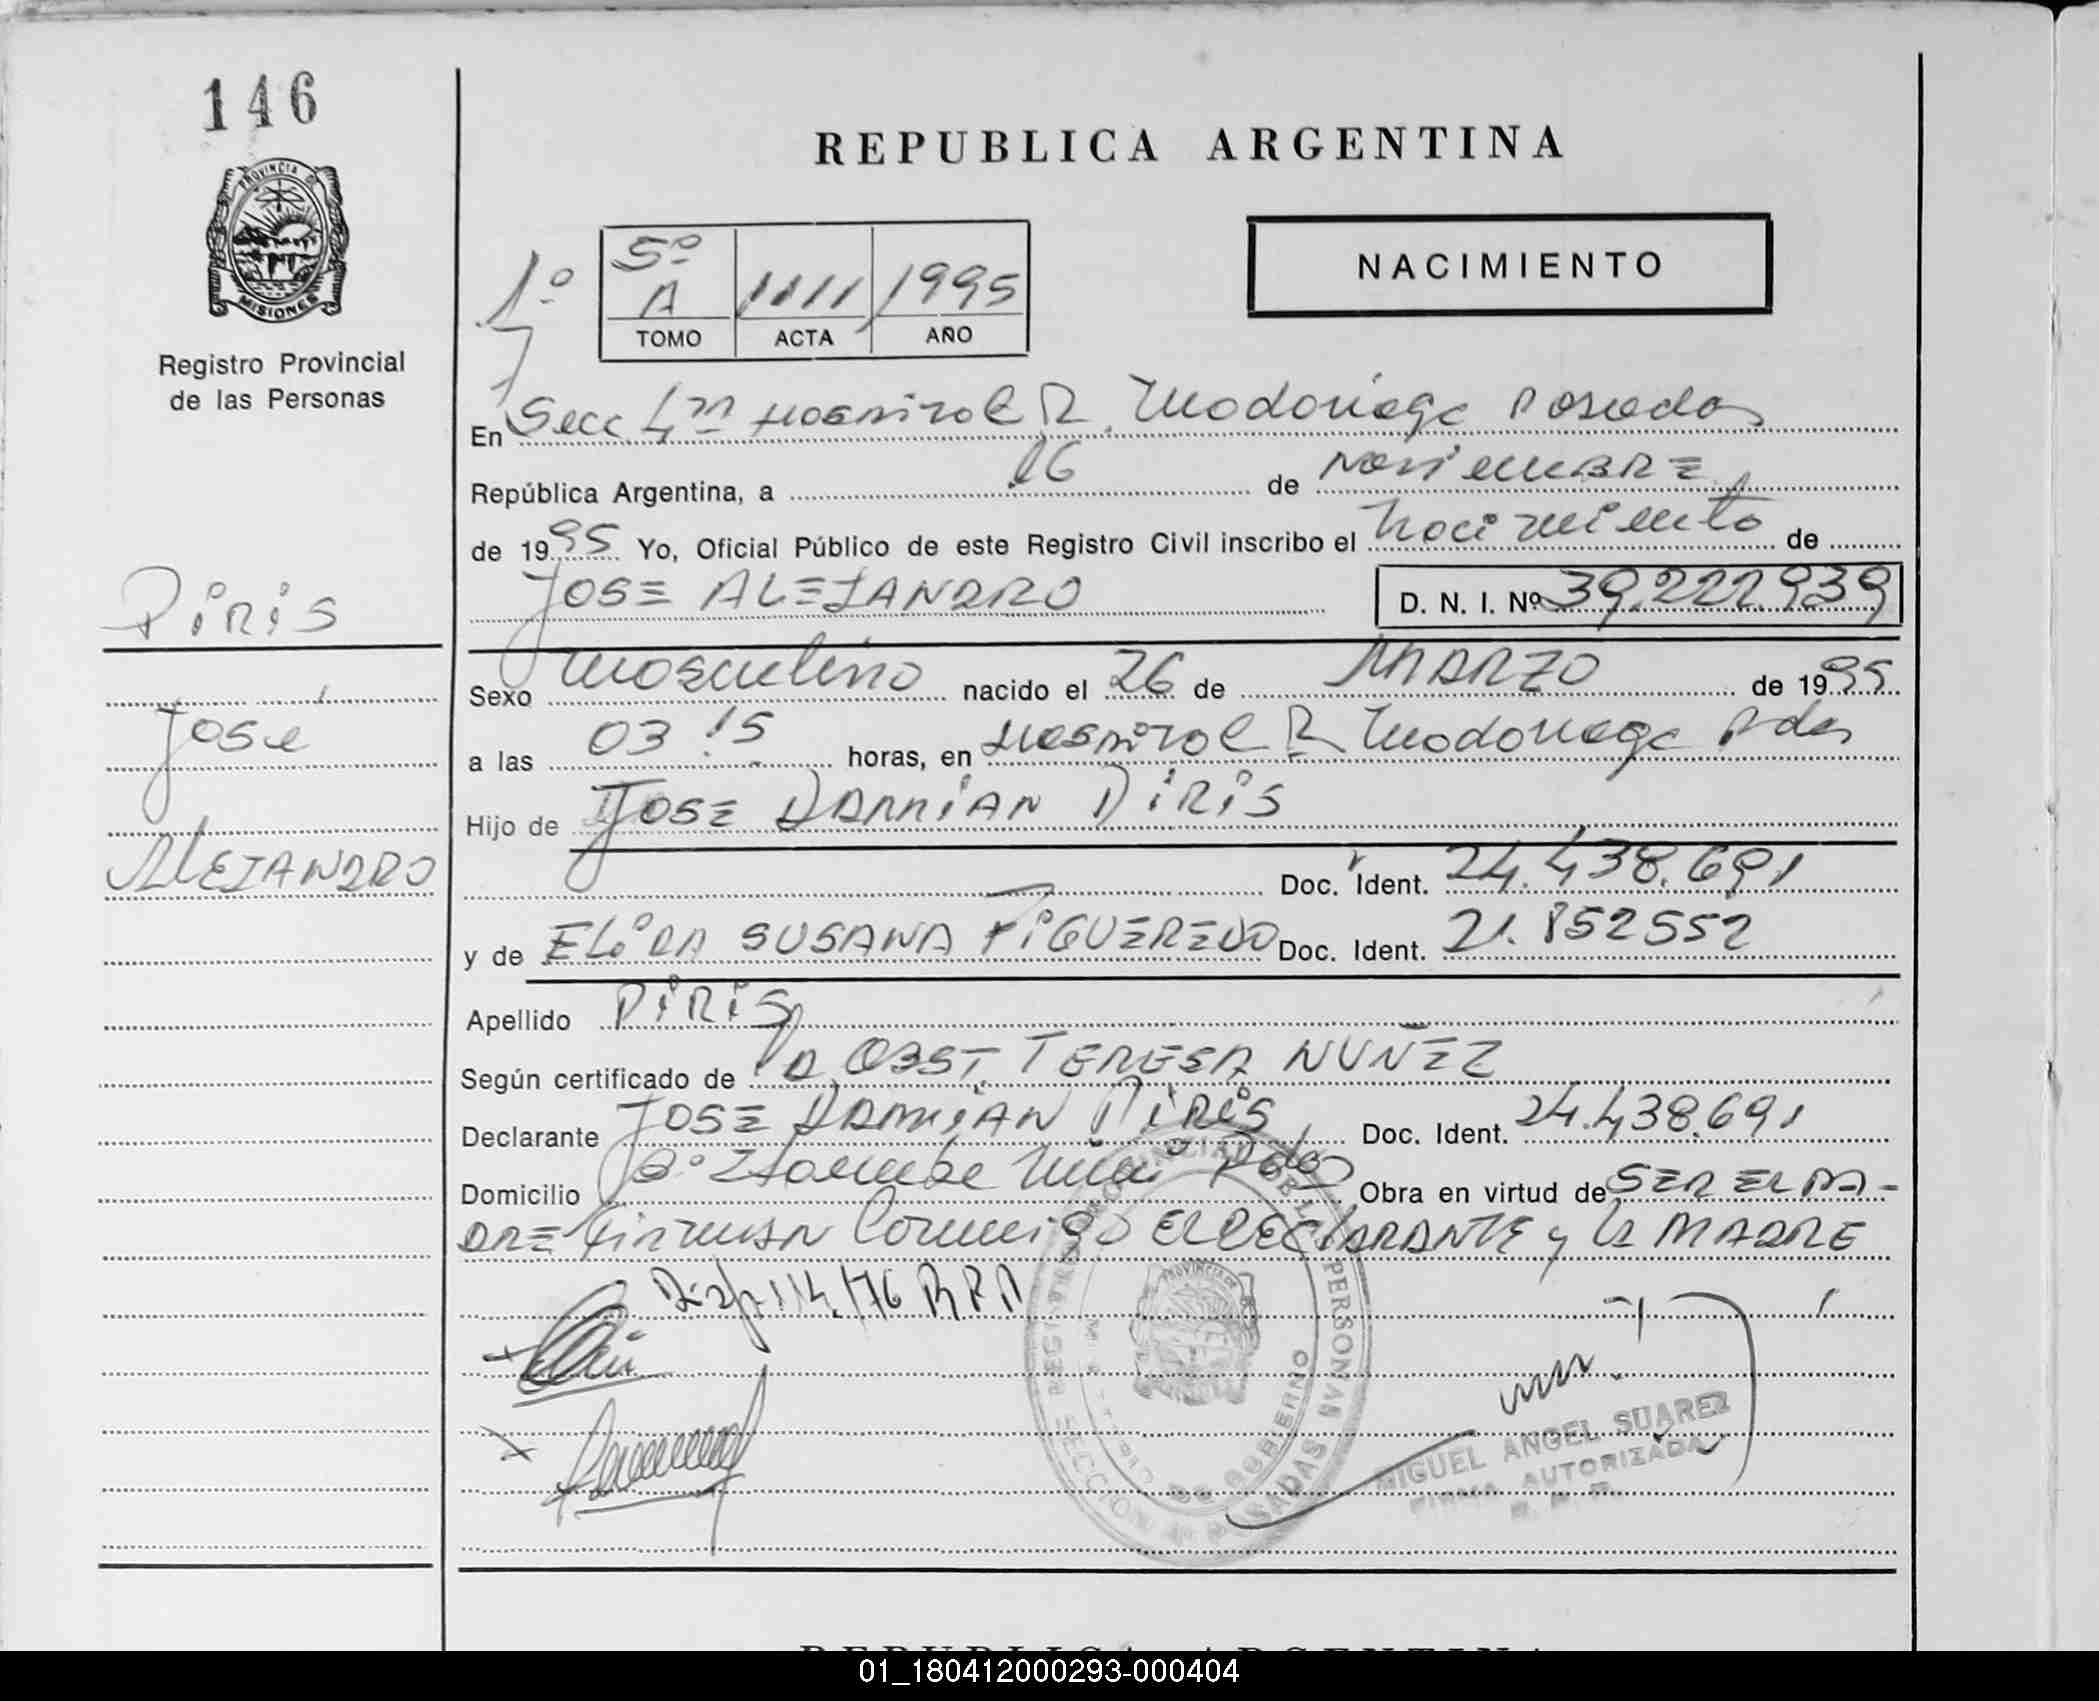 146
PROVINCIA DE
MISIONES
Registro Provincial
de las Personas
REPUBLICA ARGENTINA
NACIMIENTO
1º
5º
A 1111 1995
TOMO ACTA AÑO
En Secc 4ta Hospital R. Madariaga Posadas
República Argentina, a 16 de noviembre
de 1995 Yo, Oficial Público de este Registro Civil inscribo el nacimiento de
JOSE ALEJANDRO D. N. I. Nº 39.222.939
Piris
José
ALEJANDRO
Sexo masculino nacido el 26 de MARZO de 1995
a las 03 15 horas, en Hospital R Madariaga Pdas
Hijo de JOSE DAMIAN PIRIS
Doc. Ident. 24.438.691
y de ELIDA SUSANA FIGUEREDO Doc. Ident. 21.852552
Apellido PIRIS
Según certificado de LA OBST. TERESA NUÑEZ
Declarante JOSE DAMIAN PIRIS Doc. Ident. 24.438.691
Domicilio Bº Pdas Obra en virtud de SER EL PA-
DRE firman conmigo EL DECLARANTE y LA MADRE
Disp. 114/76 RPP
REGISTRO PROVINCIAL DE LAS PERSONAS
SECCION 4ª POSADAS
MINISTERIO DE GOBIERNO
PROVINCIA DE
MIGUEL ANGEL SUAREZ
FIRMA AUTORIZADA
R. P. P.
REPUBLICA ARGENTINA
01_180412000293-000404